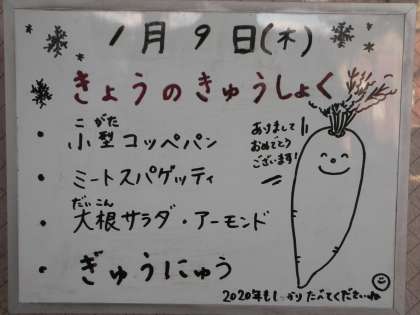 1月9日(木)
きょうのきゅうしょく
・小型コッペパン
こがた
・ミートスパゲッティ
・大根サラダ・アーモンド
だいこん
・ぎゅうにゅう
あけまして
おめでとう
ございます!
2020年もしっかりたべてくださいね